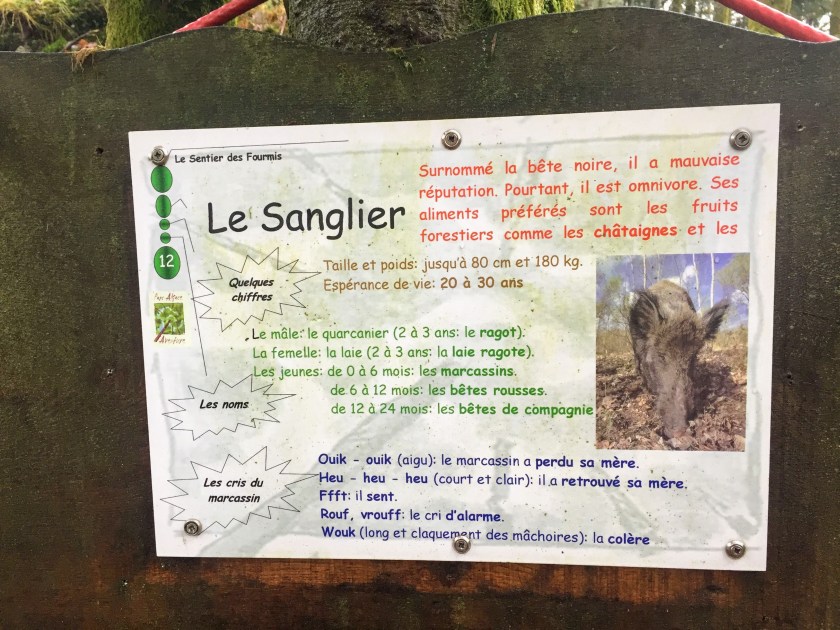 Le Sentier des Fourmis
Surnommé la bête noire, il a mauvaise
réputation. Pourtant, il est omnivore. Ses
aliments préférés sont les fruits
forestiers comme les châtaignes et les
Le Sanglier
12
Quelques
chiffres
Taille et poids: jusqu'à 80 cm et 180 kg.
Espérance de vie: 20 à 30 ans
Aventure
Le mâle: le quarcanier (2 à 3 ans: le ragot).
La femelle: la laie (2 à 3 ans: la laie ragote).
Les jeunes: de 0 à 6 mois: les marcassins.
de 6 à 12 mois: les bêtes rousses.
de 12 à 24 mois: les bêtes de compagnie
Les noms
Les cris du
marcassin
Ouik - ouik (aigu): le marcassin a perdu sa mère.
Heu - heu - heu (court et clair): il a retrouvé sa mère.
Ffft: il sent.
Rouf, vrouff: le cri d'alarme.
Wouk (long et claquement des mâchoires): la colère